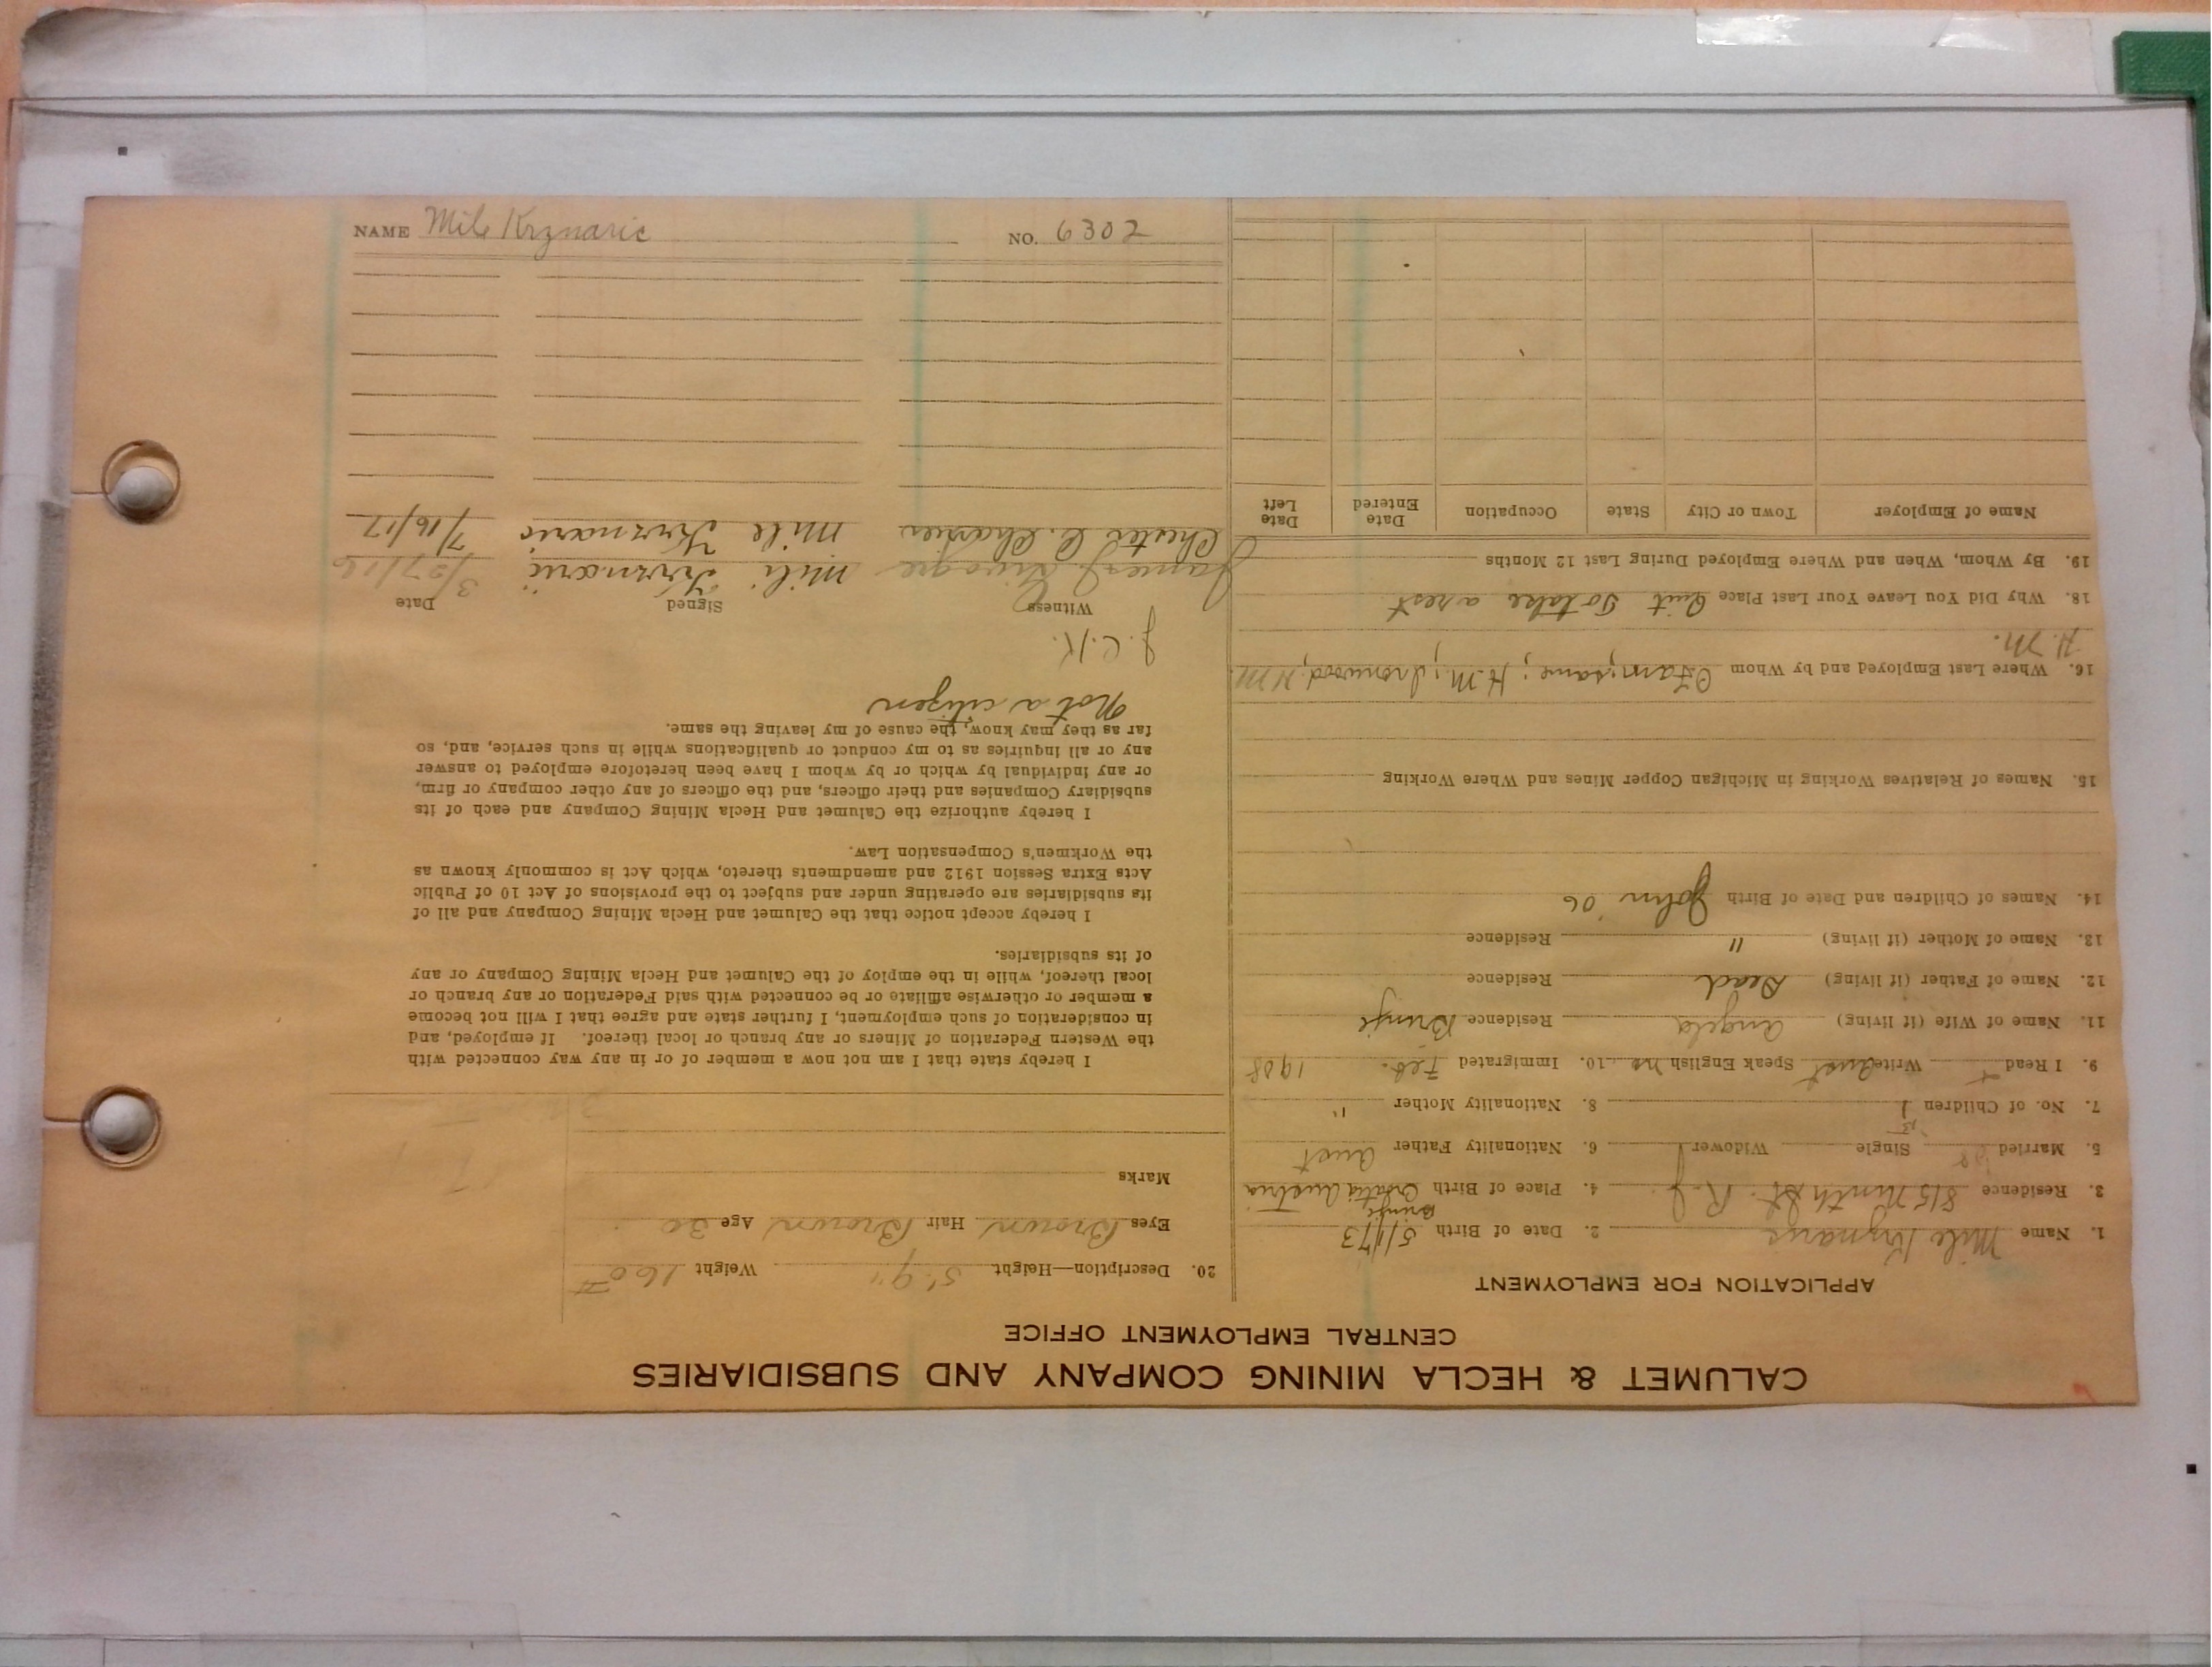 CALUMET & HECLA MINING COMPANY AND SUBSIDIARIES
CENTRAL EMPLOYMENT OFFICE
APPLICATION FOR EMPLOYMENT
1. Name Mile Krznaric 2. Date of Birth 5/1/73
3. Residence 815 Ninth St. R.J. 4. Place of Birth Brinje Croatia Austria
5. Married Single Widower 6. Nationality Father Aust
7. No. of Children 1 8. Nationality Mother "
9. I Read Write Aust Speak English no 10. Immigrated Feb. 1908
11. Name of Wife (if living) Angela Residence Brinje
12. Name of Father (if living) Dead Residence
13. Name of Mother (if living) " Residence
14. Names of Children and Date of Birth John '06
15. Names of Relatives Working in Michigan Copper Mines and Where Working
16. Where Last Employed and by Whom same; H.M.; Ironwood, H.M.
H.M.
18. Why Did You Leave Your Last Place Quit To take a rest
19. By Whom, When and Where Employed During Last 12 Months
Name of Employer Town or City State Occupation Date Entered Date Left
20. Description—Height 5' 9" Weight 160 #
Eyes Brown Hair Brown Age 30
Marks
I hereby state that I am not now a member of or in any way connected with
the Western Federation of Miners or any branch or local thereof. If employed, and
in consideration of such employment, I further state and agree that I will not become
a member or otherwise affiliate or be connected with said Federation or any branch or
local thereof, while in the employ of the Calumet and Hecla Mining Company or any
of its subsidiaries.
I hereby accept notice that the Calumet and Hecla Mining Company and all of
its subsidiaries are operating under and subject to the provisions of Act 10 of Public
Acts Extra Session 1912 and amendments thereto, which Act is commonly known as
the Workmen's Compensation Law.
I hereby authorize the Calumet and Hecla Mining Company and each of its
subsidiary Companies and their officers, and the officers of any other company or firm,
or any individual by which or by whom I have been heretofore employed to answer
any or all inquiries as to my conduct or qualifications while in such service, and, so
far as they may know, the cause of my leaving the same.
Not a citizen
J.C.K.
Witness Signed Date
James Mili Krznarić 3/27/16
Chester C. Mile Krznarić 7/16/17
NAME Mile Krznaric NO. 6302